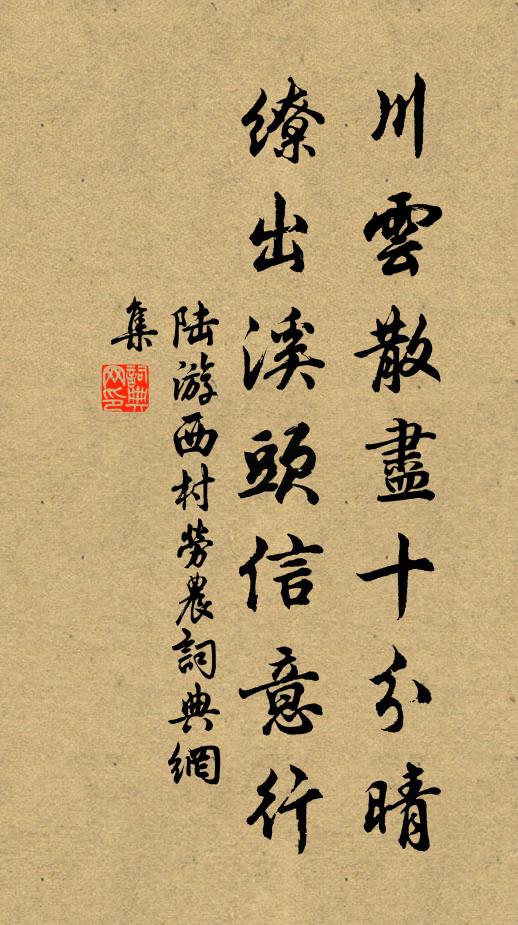 川雲散盡十分晴
繚出溪頭信意行
陆游西村勞農詞典網
集
詞典
网印